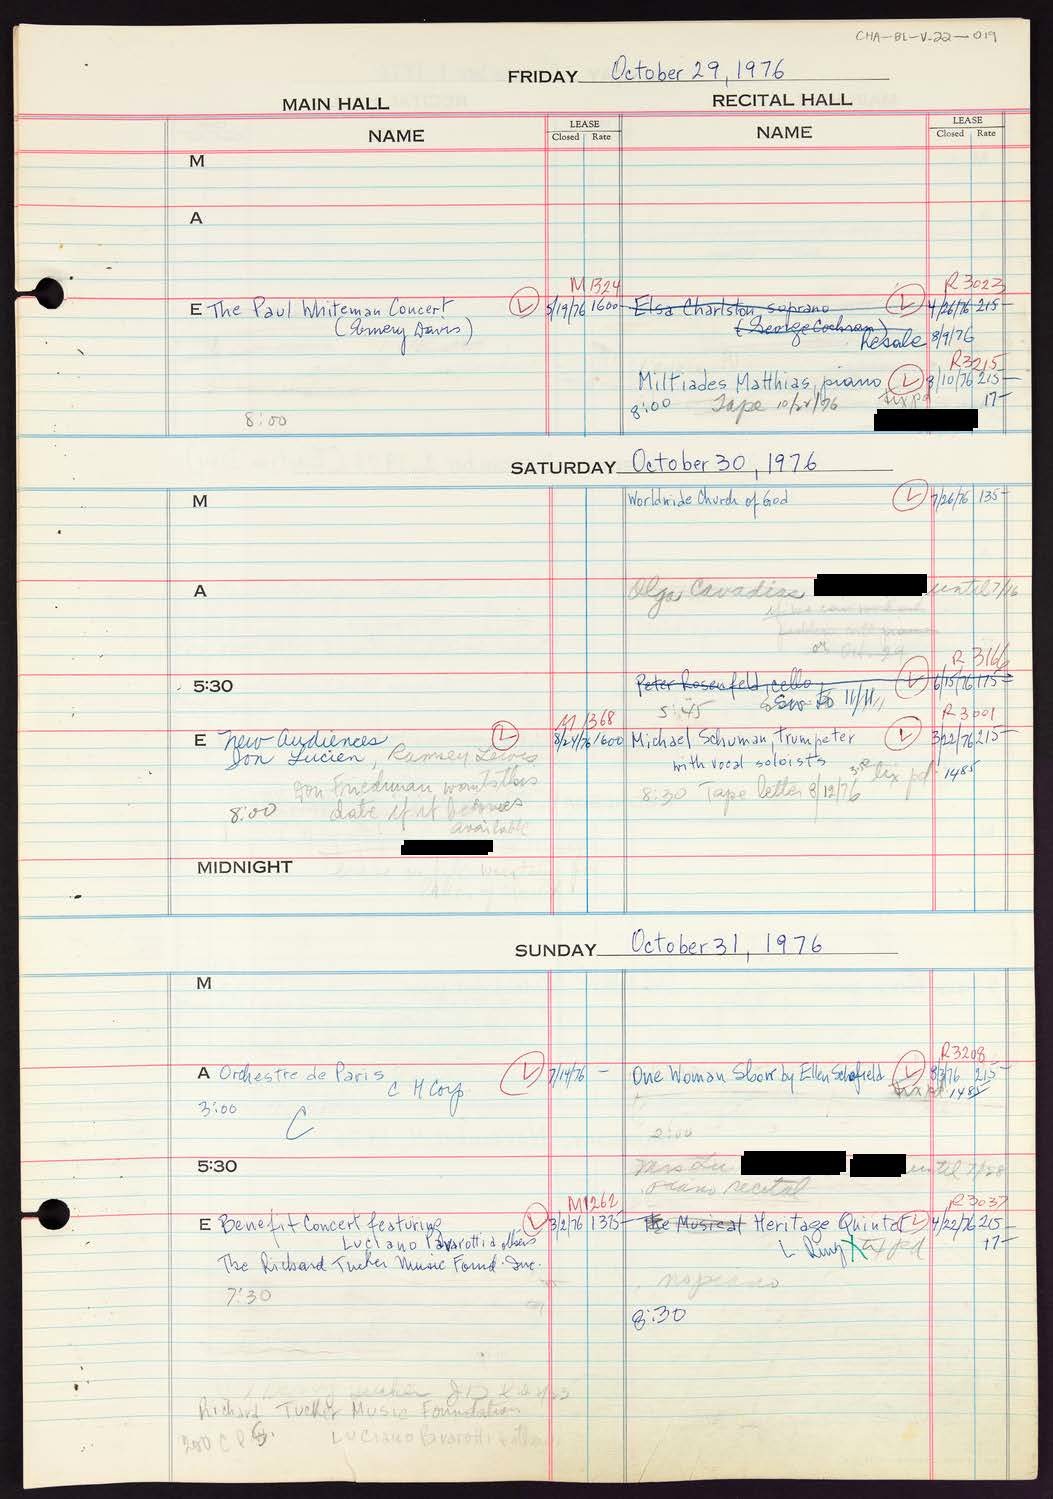 CHA-BL-V-22-019
FRIDAY October 29, 1976
MAIN HALL
RECITAL HALL
NAME
LEASE
Closed Rate
NAME
LEASE
Closed Rate
M
A
M1324
E The Paul Whiteman Concert L 5/19/76 1600-
(Emery Davis)
8:00
R3023
Elsa Charlston, soprano L 4/26/76 215-
(George Cochran)
Resale 8/9/76
R3215
Miltiades Matthias, piano L 8/10/76 215-
8:00 Tape 10/21/76 tix pd 17-
SATURDAY October 30, 1976
M
Worldwide Church of God L 7/26/76 135-
A
Olga Cavadias until 7/16
or Oct. 29
5:30
R 3166
Peter Rosenfeld, cello L 6/15/76 175-
5:45 Sw to 11/11
M 1368
E New Audiences L 8/24/76 1600
Jon Lucien, Ramsey Lewis
Jon Friedman wants this
8:00 date if it becomes
available
R3001
Michael Schuman, trumpeter L 3/22/76 215-
with vocal soloists
8:30 Tape letter 8/12/76 tix pd. 1485
MIDNIGHT
SUNDAY October 31, 1976
M
A Orchestre de Paris L 7/14/76 -
C H Corp
3:00
C
R3208
One Woman Show by Ellen Schofield L 8/3/76 215-
tix pd. 1485
2:00
5:30
Mrs Lu until 7/28
piano recital
M1262
E Benefit Concert featuring L 3/2/76 1375-
Luciano Pavarotti & others
The Richard Tucker Music Found. Inc.
7:30
R3037
The Musical Heritage Quintet L 4/22/76 215-
L Ring X tix pd 17-
no piano
8:30
Richard Tucker Music Foundation
Luciano Pavarotti & others